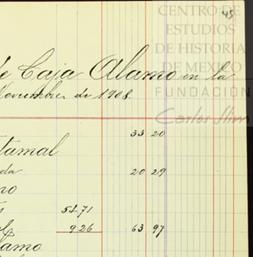 45
CENTRO DE
ESTUDIOS
DE HISTORIA
DE MEXICO
FUNDACIÓN
Carlos Slim
de Caja Alamo en la
Noviembre de 1908.
33 20
tamal
da 20 29
no
51.71
9.26 63 97
lamo